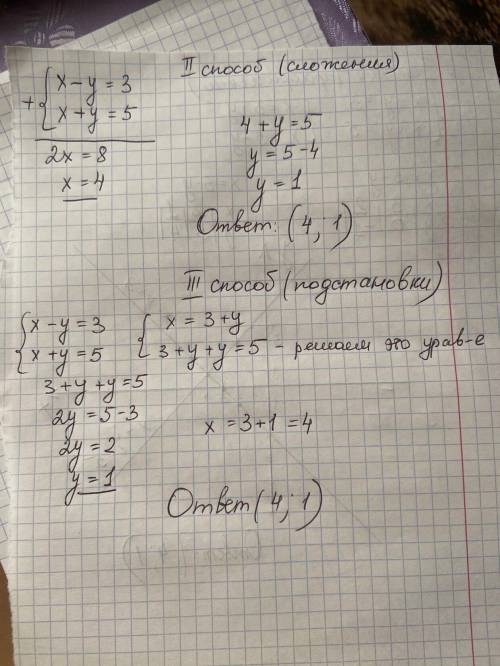 II способ (сложения)
+ { x - y = 3
x + y = 5
2x = 8
x = 4
4 + y = 5
y = 5 - 4
y = 1
Ответ: (4; 1)
III способ (подстановки)
{ x - y = 3
x + y = 5
{ x = 3 + y
3 + y + y = 5 - решаем это урав-е
3 + y + y = 5
2y = 5 - 3
2y = 2
y = 1
x = 3 + 1 = 4
Ответ (4; 1)